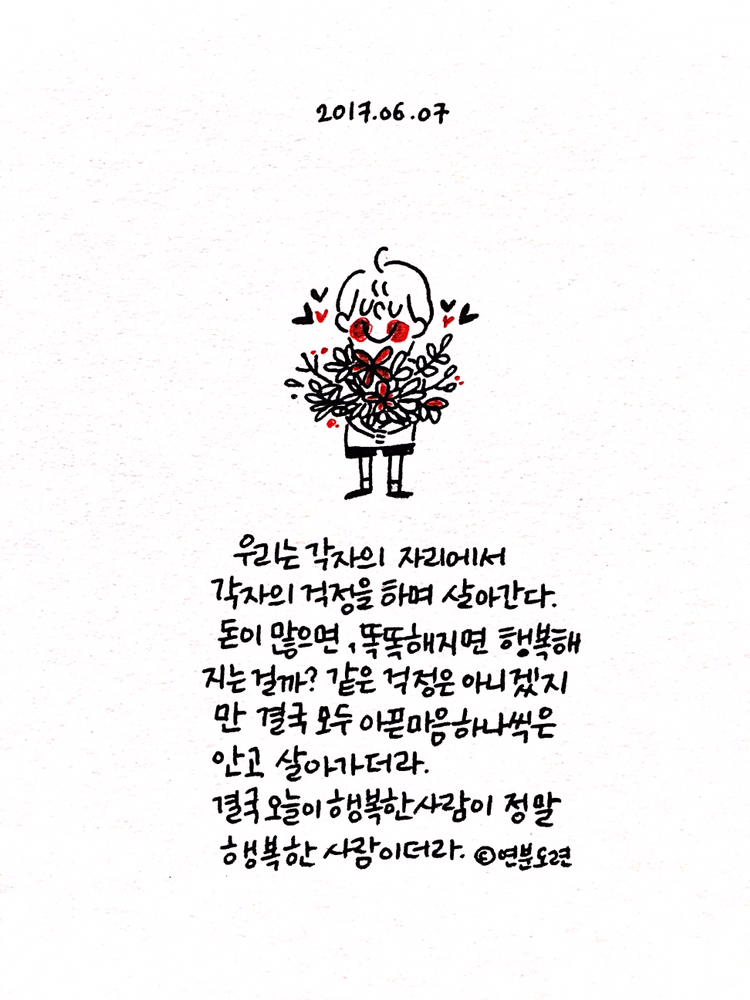 2017.06.07
우리는 각자의 자리에서
각자의 걱정을 하며 살아간다.
돈이 많으면, 똑똑해지면 행복해
지는걸까? 같은 걱정은 아니겠지
만 결국 모두 아픈마음하나씩은
안고 살아가더라.
결국 오늘이 행복한사람이 정말
행복한 사람이더라. ©연분도련